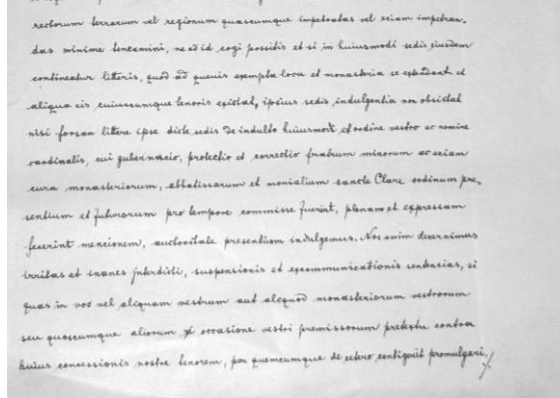 rectorum terrarum vel regionum quascumque impetratas vel eciam impetran-
das minime teneamini, ne ad id cogi possitis et si in huiusmodi sedis eiusdem
contineatur litteris, quod ad quevis exempta loca et monasteria se extendant et
aliqua eis cuiuscumque tenoris existat, ipsius sedis indulgentia non obsistat
nisi forsan littere ipse dicte sedis de indulto huiusmodi et ordine vestro ac nomine
cardinalis, cui gubernacio, protectio et correctio fratrum minorum ac eciam
cura monasteriorum, abbatissarum et monialium sancte Clare ordinum pre-
sentium et futurarum pro tempore commisse fuerint, plenam et expressam
fecerint mencionem, auctoritate presentium indulgemus. Nos enim decernimus
irritas et inanes interdicti, suspensionis et excommunicationis sentencias, si
quas in vos vel aliquam vestrum aut aliquod monasteriorum vestrorum
seu quoscumque aliorum occasione vestri premissorum pretextu contra
huius concessionis nostre tenorem, per quemcumque de cetero contigerit promulgari.